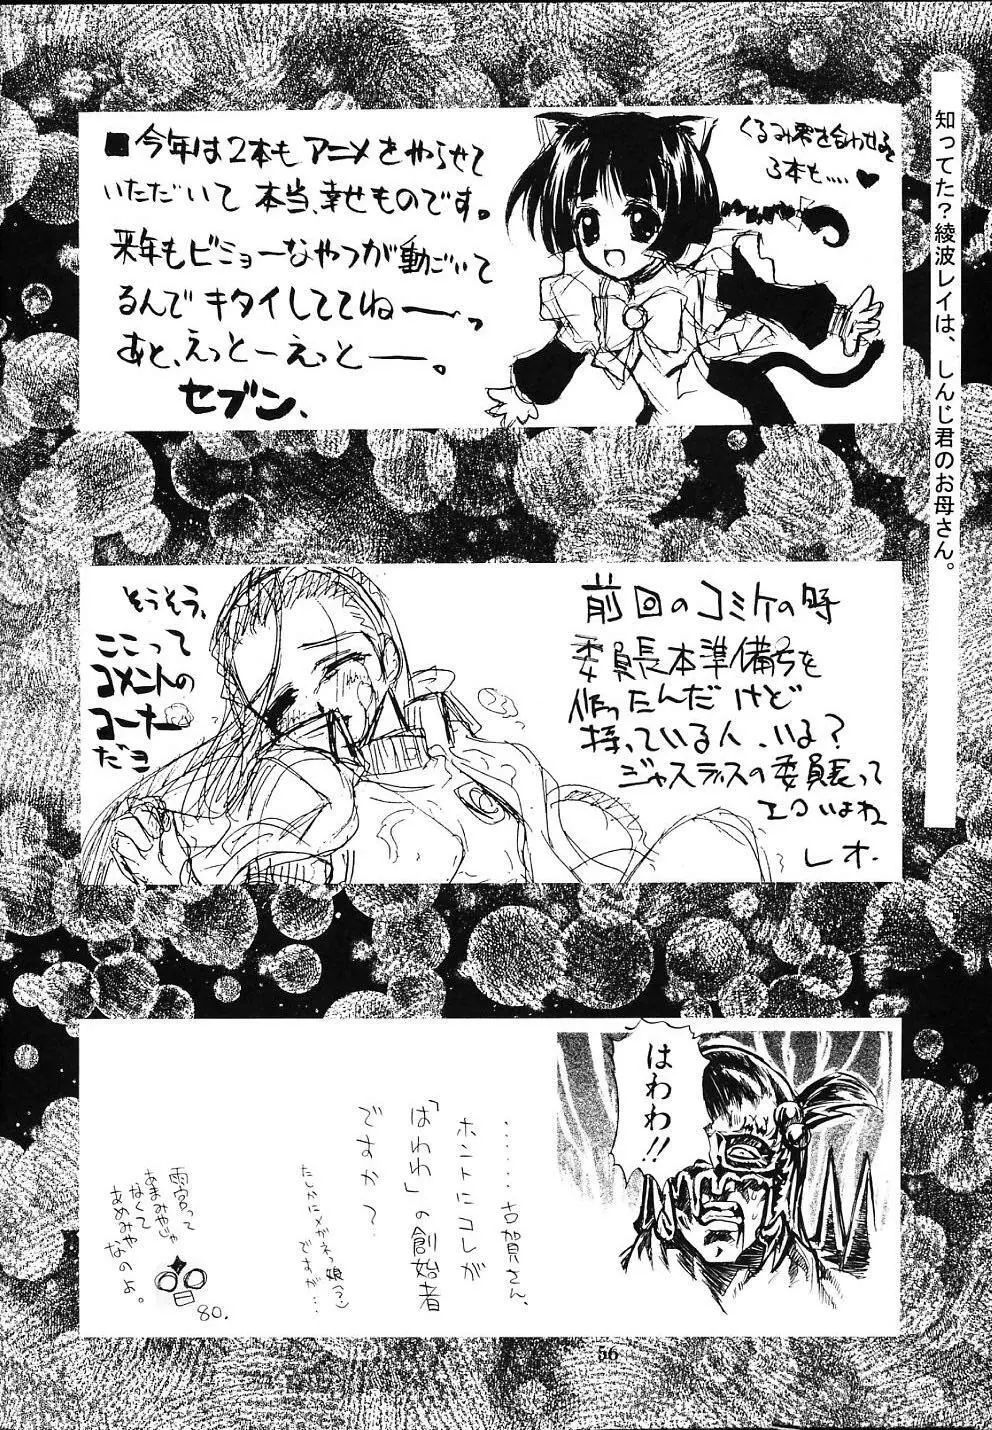 知ってた？綾波レイは、しんじ君のお母さん。
■今年は2本もアニメをやらせて
いただいて本当、幸せものです。
来年もビミョーなやつが動ごいて
るんでキタイしててねーっ
あと、えっとーえっとー。
セブン、
くるみ君を合わせると
3本も‥‥♥
前回のコミケの時
委員長本準備号を
作ったんだけど
持っている人、いる？
ジャスティスの委員長って
エロいよね
レオ.
そうそう、
ここって
コメントの
コーナー
だヨ
はわわ!!
‥‥‥古賀さん、
ホントにコレが
「はわわ」の創始者
ですか？
たしかにメガネっ娘(?)
ですが…
雨宮って
あまみやじゃ
なくて
あめみや
なのよ。
80.
56